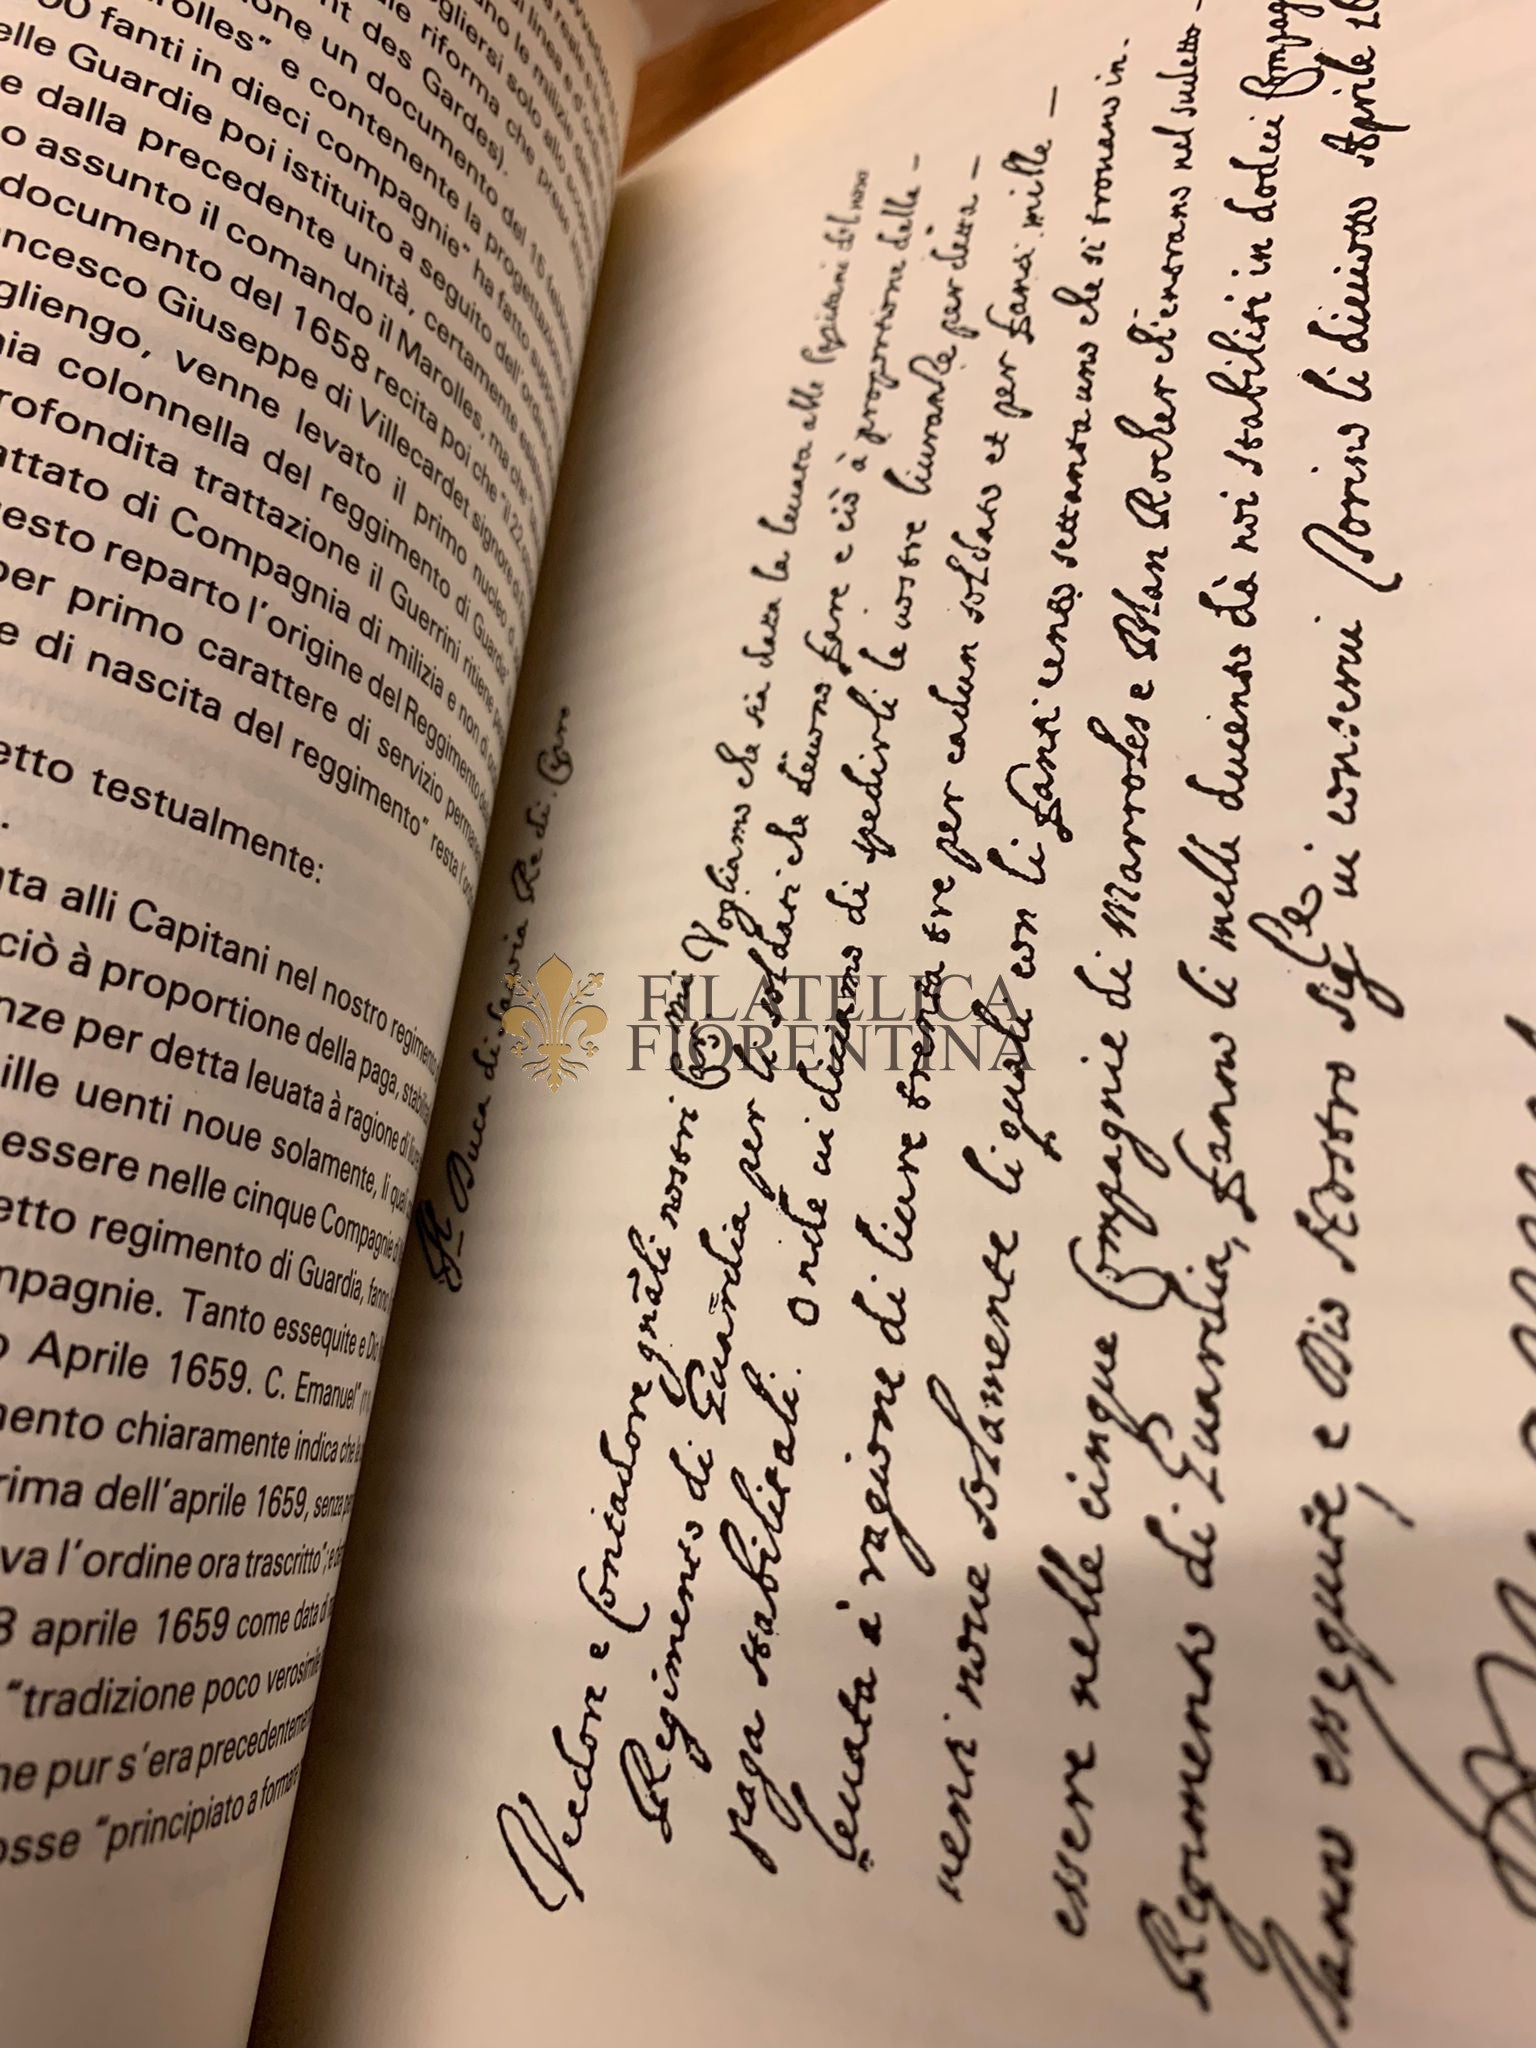 olles" e contenente la progettazione
00 fanti in dieci compagnie" ha fatto suppor
elle Guardie poi istituito a seguito dell'ordine
e dalla precedente unità, certamente
o assunto il comando il Marolles, ma che
documento del 1658 recita poi che "il 22
ncesco Giuseppe di Villecardet signore di
gliengo, venne levato il primo nucleo
nia colonnella del reggimento di Guardia"
rofondita trattazione il Guerrini ritiene
attato di Compagnia di milizia e non di
uesto reparto l'origine del Reggimento
per primo carattere di servizio perman
e di nascita del reggimento" resta l'
etto testualmente:
ata alli Capitani nel nostro regimento
ciò à proportione della paga, stabilita
nze per detta leuata à ragione di
ille uenti noue solamente, li quali
essere nelle cinque Compagnie di
etto regimento di Guardia, fanno
mpagnie. Tanto essequite e Dio
o Aprile 1659. C. Emanuel"
mento chiaramente indica che
rima dell'aprile 1659, senza
va l'ordine ora trascritto";
8 aprile 1659 come data di
"tradizione poco verosimile
he pur s'era precedentemen
osse "principiato a formare
Il Duca di Sauoia Re di Cipro
Veedore e Contadore gnāli nostri Car.mi Vogliamo che sia data la leuata alli Capitani del nostro
Regimento di Guardia per li soldati che deuono fare e ciò à proportione della
paga stabilitali. Onde ui diciamo di spedirli le nostre liuranze per detta
leuata à ragione di liure trenta tre per cadun soldato et per fanti mille
uenti noue solamente li quali con li fanti cento settantauno che si trouano in
essere nelle cinque Compagnie di Marroles e Blan Rocher ch'entrano nel sudetto
Regimento di Guardia, fanno li mille ducento da noi stabiliti in dodici Compag
Tanto essequite e Dio Nostro Sig.re ui conserui Torino li dieciotto Aprile 16
FILATELICA
FIORENTINA